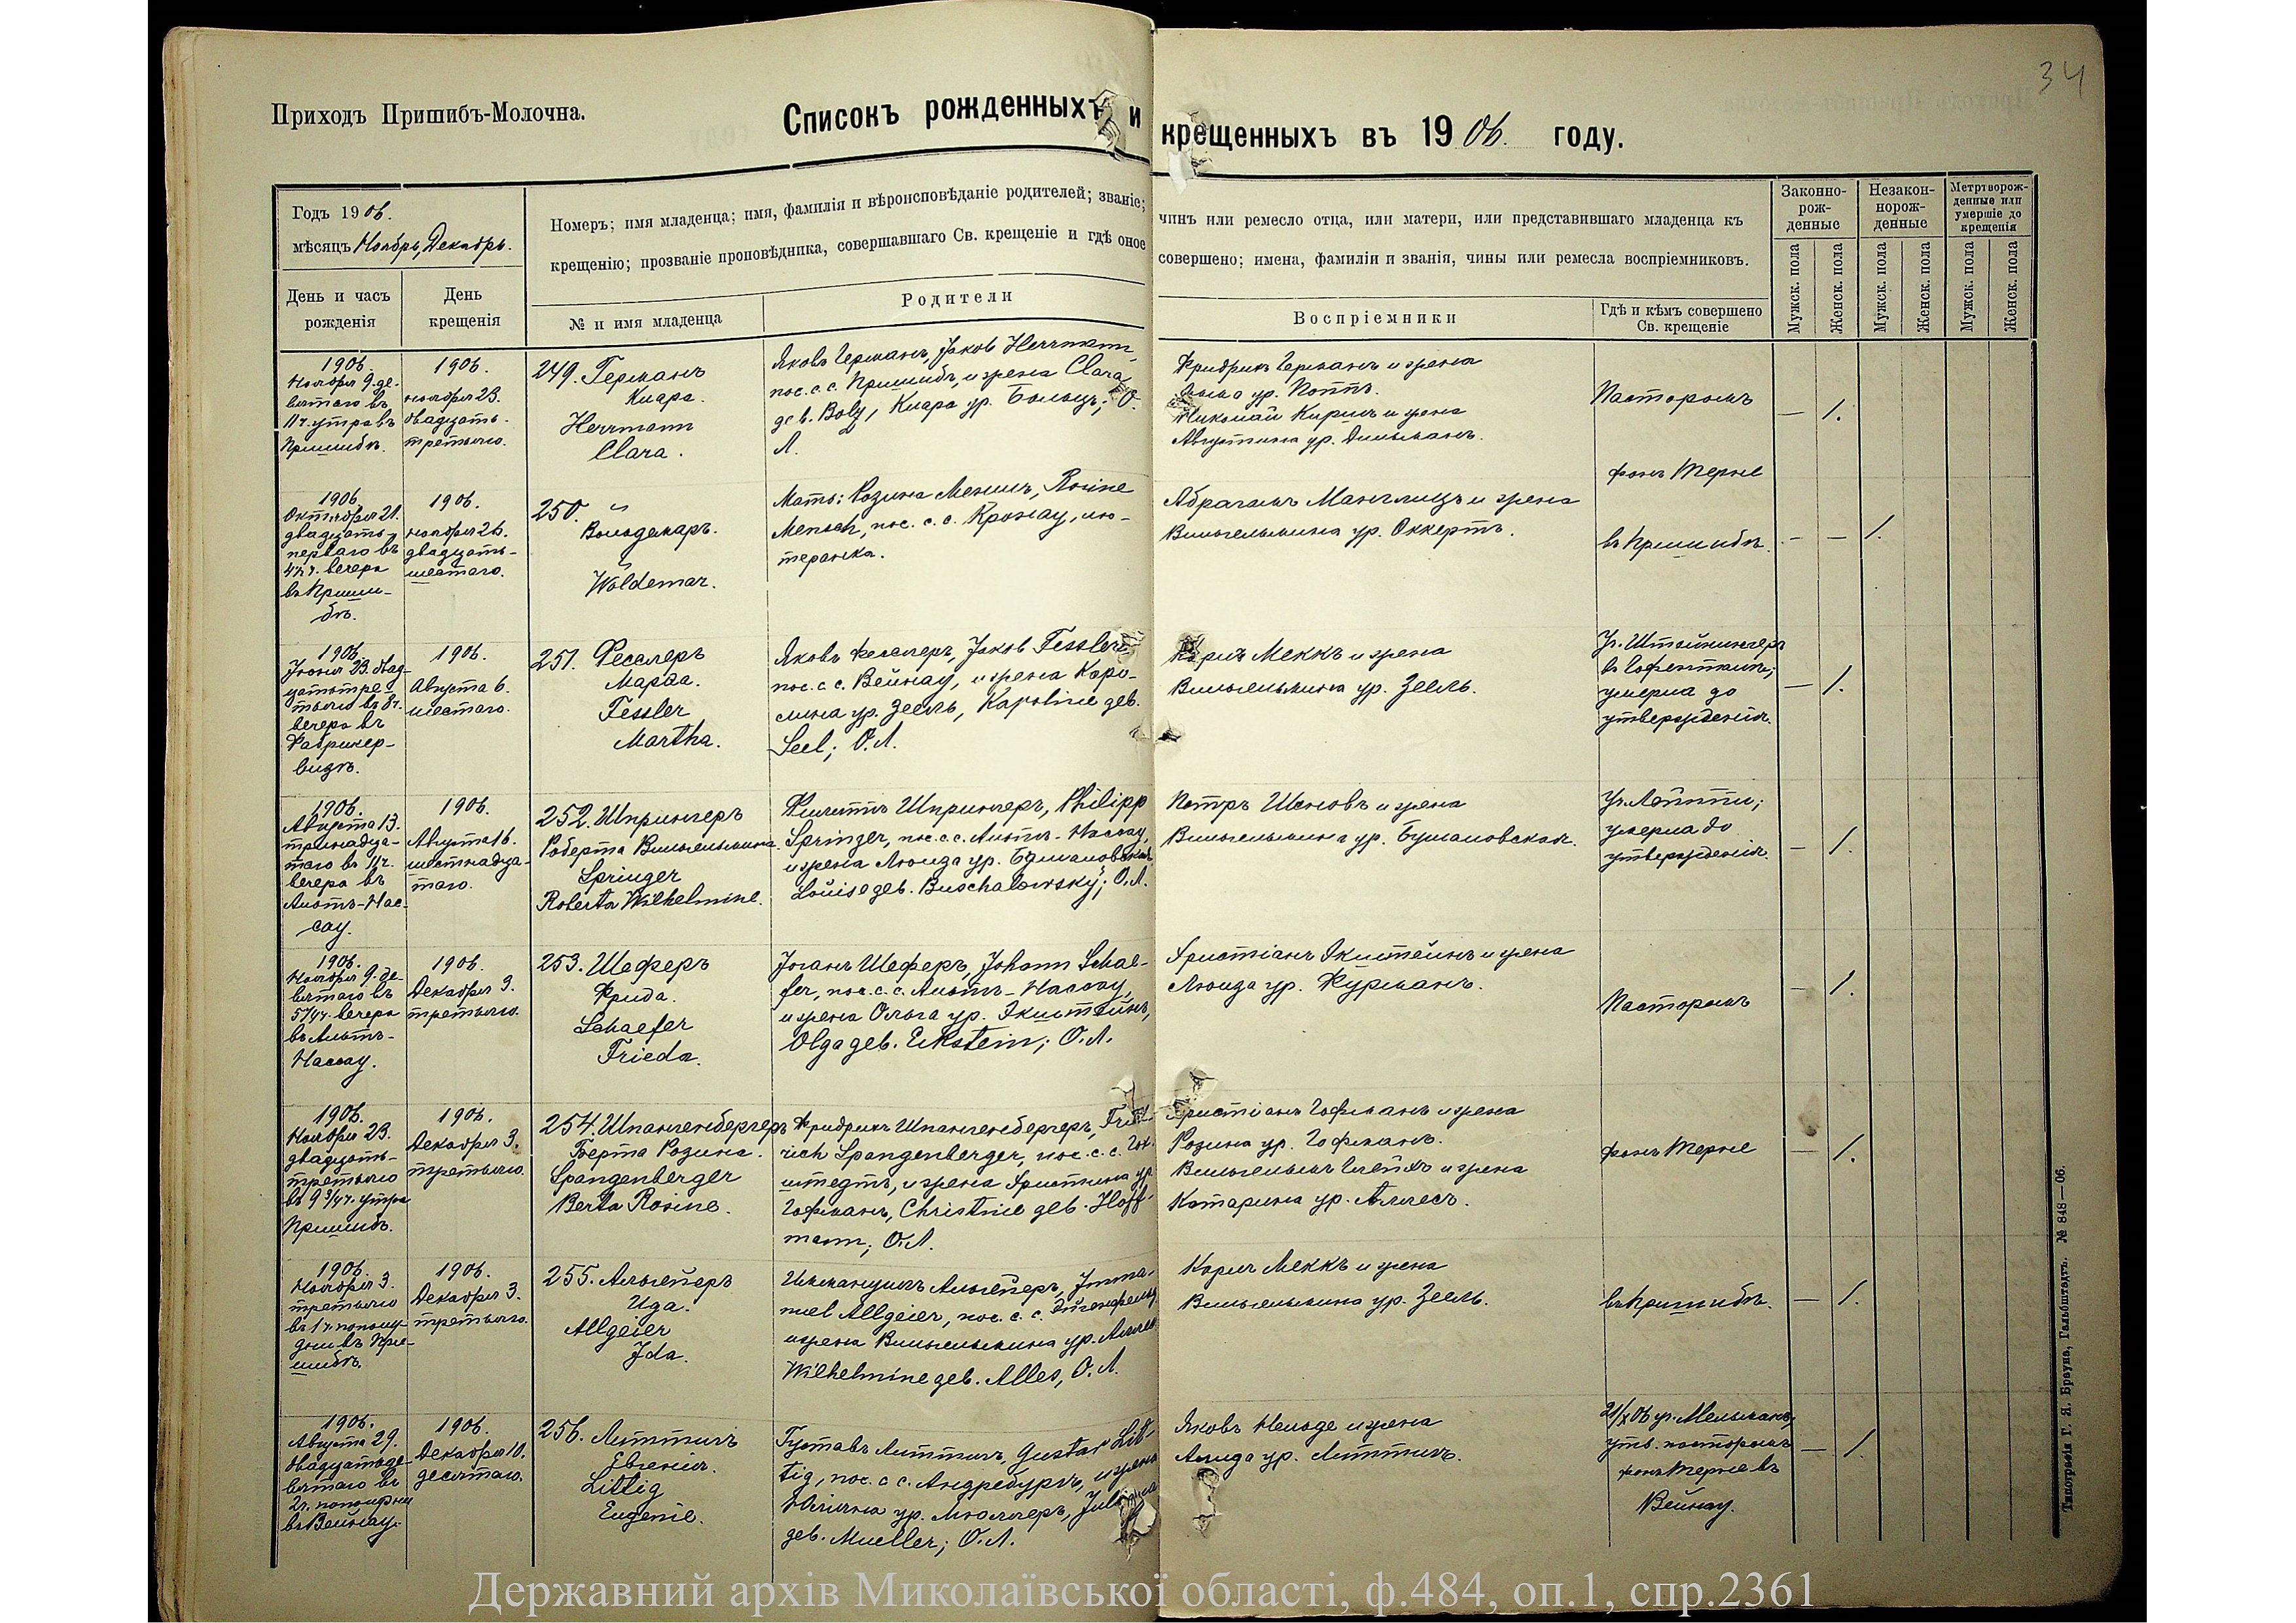 34
Приходъ Пришибъ-Молочна.
Списокъ рожденныхъ и крещенныхъ въ 1906. году.
Годъ 1906.
мѣсяцъ Ноябрь, Декабрь.
Номеръ; имя младенца; имя, фамилія и вѣроисповѣданіе родителей; званіе; чинъ или ремесло отца, или матери, или представившаго младенца къ
крещенію; прозваніе проповѣдника, совершавшаго Св. крещеніе и гдѣ оное совершено; имена, фамиліи и званія, чины или ремесла воспріемниковъ.
Законно-
рож-
денные
Незакон-
норож-
денные
Метртворож-
денные или
умершіе до
крещенія
День и часъ
рожденія
День
крещенія
№ и имя младенца
Родители
Воспріемники
Гдѣ и кѣмъ совершено
Св. крещеніе
Мужск. пола
Женск. пола
Мужск. пола
Женск. пола
Мужск. пола
Женск. пола
1906.
Ноября 9. де-
вятаго въ
11 ч. утра въ
Пришибѣ.
1906.
ноября 23.
двадцать-
третьяго.
249. Германъ
Клара.
Herrmann
Clara.
Яковъ Германъ, Jakob Herrmann,
пос. с. с. Пришибъ, и жена Clara
geb. Bolz, Клара ур. Больцъ; О.
Л.
Фридрихъ Германъ и жена
ур. Поттъ.
Николай Киршъ и жена
Августина ур. Дильманъ.
Пасторомъ
— 1.
1906.
Октября 21.
двадцать-
перваго въ
4½ ч. вечера
въ Приши-
бѣ.
1906.
ноября 26.
двадцать-
шестаго.
250. "
Вольдемаръ.
"
Woldemar.
Мать: Розина Меншъ, Rosine
Mensch, пос. с. с. Кронау, лю-
теранка.
Абрагамъ Манглицъ и жена
Вильгельмина ур. Оккертъ.
фонъ Терне
въ Пришибѣ.
— — 1.
1906.
Іюня 23. двад-
цатьтре-
тьяго въ 8 ч.
вечера въ
Фабрикер-
визѣ.
1906.
Августа 6.
шестаго.
251. Фесслеръ
Марѳа.
Fessler
Martha.
Яковъ Фесслеръ, Jakob Fessler,
пос. с. с. Вейнау, и жена Каро-
лина ур. Зеель, Karoline geb.
Seel; О. Л.
Карлъ Меккъ и жена
Вильгельмина ур. Зеель.
Уч. Штейнингеръ
въ Гофенталѣ;
умерла до
утвержденія.
— 1.
1906.
Августа 13.
тринадца-
таго въ 11 ч.
вечера въ
Альтъ-Нас-
сау.
1906.
Августа 16.
шестнадца-
таго.
252. Шпрингеръ
Роберта Вильгельмина.
Springer
Roberta Wilhelmine.
Филиппъ Шпрингеръ, Philipp
Springer, пос. с. с. Альтъ-Нассау,
и жена Луиза ур. Бушаловская
Louise geb. Buschalowsky; О. Л.
Петръ Шоновъ и жена
Вильгельмина ур. Бушаловская.
Уч. Лоттъ;
умерла до
утвержденія.
— 1.
1906.
Ноября 9. де-
вятаго въ
5¾ ч. вечера
въ Альтъ-
Нассау.
1906.
Декабря 3.
третьяго.
253. Шеферъ
Фрида.
Schaefer
Frieda.
Іоганъ Шеферъ, Johann Schae-
fer, пос. с. с. Альтъ-Нассау,
и жена Ольга ур. Экштейнъ,
Olga geb. Ekstein; О. Л.
Христіанъ Экштейнъ и жена
Луиза ур. Фурманъ.
Пасторомъ
— 1.
1906.
Ноября 23.
двадцать-
третьяго
въ 9¾ ч. утра
Пришибъ.
1906.
Декабря 3.
третьяго.
254. Шпангенбергеръ
Берта Розина.
Spangenberger
Berta Rosine.
Фридрихъ Шпангенбергеръ, Fried-
rich Spangenberger, пос. с. с. Гох-
штедтъ, и жена Христина ур.
Гофманъ, Christine geb. Hoff-
mann; О. Л.
Христіанъ Гофманъ и жена
Розина ур. Гофманъ.
Вильгельмъ и жена
Катарина ур. Аллесъ.
фонъ Терне
— 1.
1906.
Ноября 3.
третьяго
въ 1 ч. пополу-
дни въ При-
шибѣ.
1906.
Декабря 3.
третьяго.
255. Альгейеръ
Ида.
Allgeier
Ida.
Иммануилъ Альгейеръ, Imma-
nuel Allgeier, пос. с. с. Эйгенфельдъ
и жена Вильгельмина ур. Аллес
Wilhelmine geb. Alles, О. Л.
Карлъ Меккъ и жена
Вильгельмина ур. Зеель.
въ Пришибѣ.
— 1.
1906.
Августа 29.
двадцатьде-
вятаго въ
2 ч. пополудни
въ Вейнау.
1906.
Декабря 10.
десятаго.
256. Литтигъ
Евгенія.
Littig
Eugenie.
Густавъ Литтигъ, Gustav Lit-
tig, пос. с. с. Андребургъ, и жена
Юліана ур. Мюллеръ, Juliana
geb. Mueller; О. Л.
Яковъ Нельде и жена
Алида ур. Литтигъ.
21/X 06 уч. Мельманъ;
утв. пасторомъ
фонъ Терне въ
Вейнау.
— 1.
Типографія Г. Я. Брауна, Гальбштадтъ. № 848—06.
Державний архів Миколаївської області, ф.484, оп.1, спр.2361